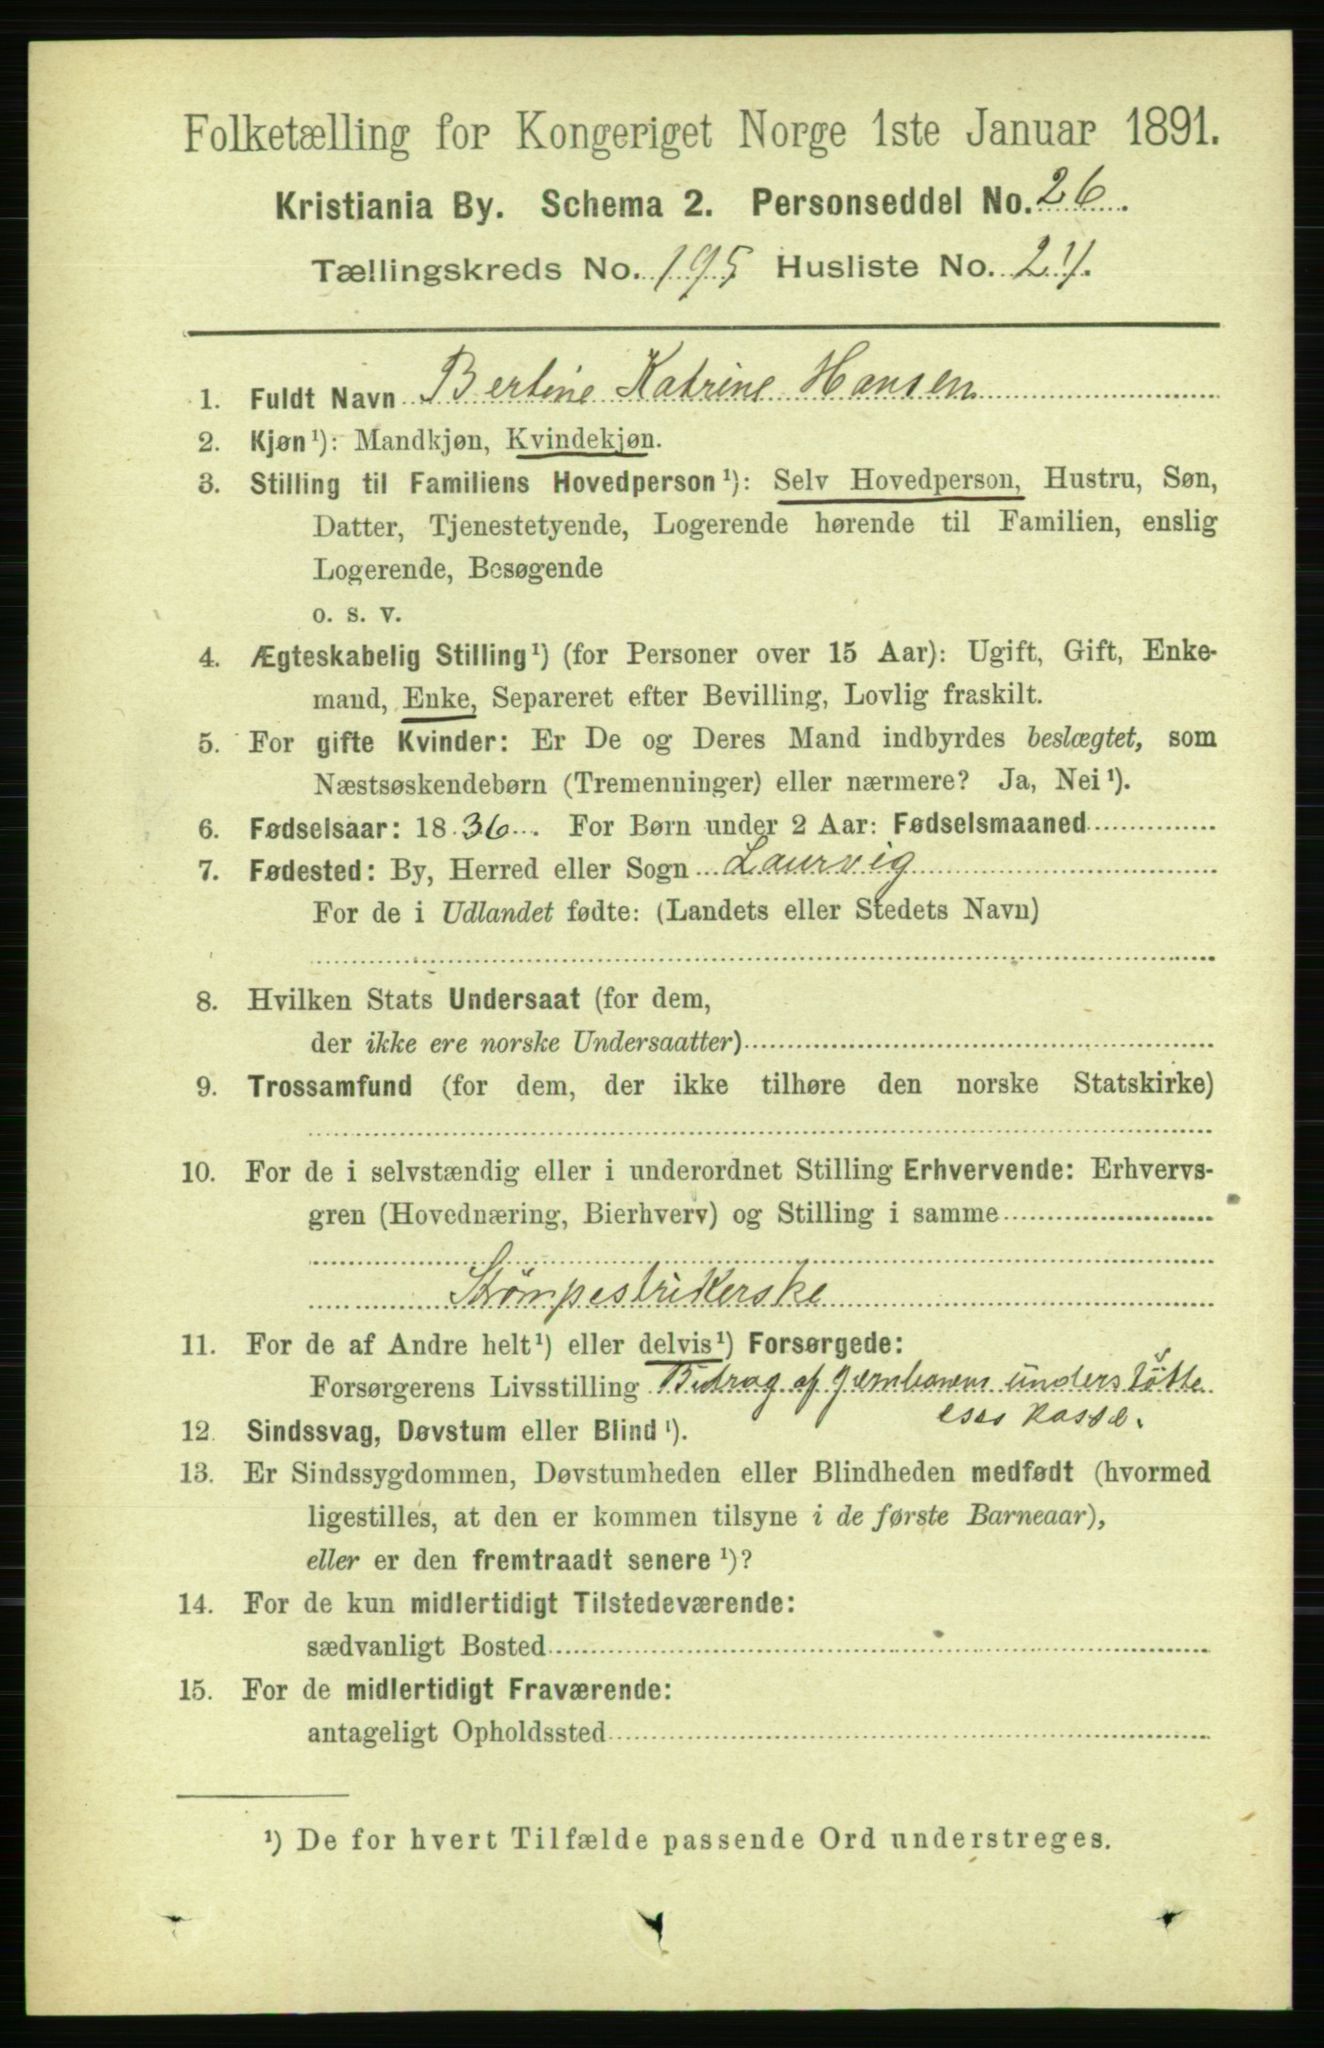 Folketælling for Kongeriget Norge 1ste Januar 1891.
Kristiania By. Schema 2. Personseddel No. 26.
Tællingskreds No. 195 Husliste No. 24.
1. Fuldt Navn Bertine Katrine Hansen
2. Kjøn ¹): Mandkjøn, Kvindekjøn.
3. Stilling til Familiens Hovedperson ¹): Selv Hovedperson, Hustru, Søn,
Datter, Tjenestetyende, Logerende hørende til Familien, enslig
Logerende, Besøgende
o. s. v.
4. Ægteskabelig Stilling ¹) (for Personer over 15 Aar): Ugift, Gift, Enke-
mand, Enke, Separeret efter Bevilling, Lovlig fraskilt.
5. For gifte Kvinder: Er De og Deres Mand indbyrdes beslægtet, som
Næstsøskendebørn (Tremenninger) eller nærmere? Ja, Nei ¹).
6. Fødselsaar: 1836. For Børn under 2 Aar: Fødselsmaaned
7. Fødested: By, Herred eller Sogn Laurvig
For de i Udlandet fødte: (Landets eller Stedets Navn)
8. Hvilken Stats Undersaat (for dem,
der ikke ere norske Undersaatter)
9. Trossamfund (for dem, der ikke tilhøre den norske Statskirke)
10. For de i selvstændig eller i underordnet Stilling Erhvervende: Erhvervs-
gren (Hovednæring, Bierhverv) og Stilling i samme
Strømpestrikerske
11. For de af Andre helt ¹) eller delvis ¹) Forsørgede:
Forsørgerens Livsstilling Bidrag af Jernbanens understötte
eses Kasse.
12. Sindssvag, Døvstum eller Blind ¹).
13. Er Sindssygdommen, Døvstumheden eller Blindheden medfødt (hvormed
ligestilles, at den er kommen tilsyne i de første Barneaar),
eller er den fremtraadt senere ¹)?
14. For de kun midlertidigt Tilstedeværende:
sædvanligt Bosted
15. For de midlertidigt Fraværende:
antageligt Opholdssted
¹) De for hvert Tilfælde passende Ord understreges.